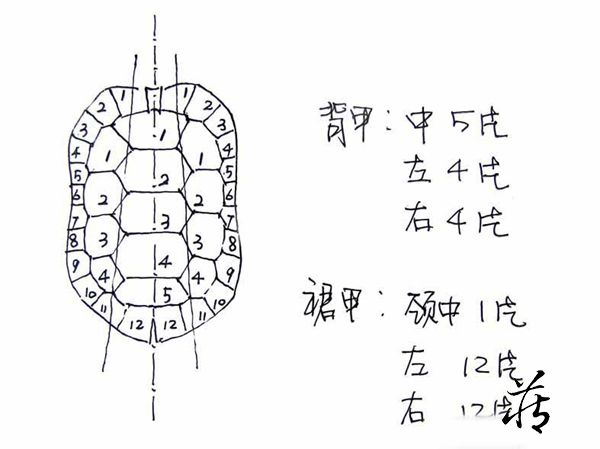 1 1
2 2
3 3
4 1 4
5 1 1 5
6 2 6
7 2 2 7
8 3 8
9 3 3 9
10 4 4 4 10
11 5 11
12 12
背甲：中 5片
左 4片
右 4片
裙甲：颈中 1片
左 12片
右 12片